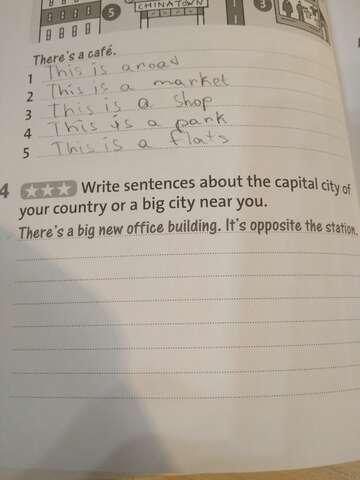 5
CHINATOWN
3
There's a café.
1 This is aroad
2 This is a market
3 This is a shop
4 This is a park
5 This is a flats
4 ★★★ Write sentences about the capital city of
your country or a big city near you.
There's a big new office building. It's opposite the station.